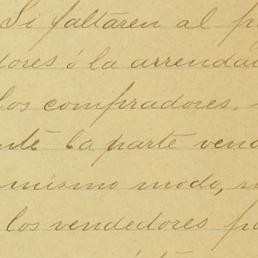 Si faltaren al p
dores ó la arrendad
los compradores.
nté la parte vend
mismo modo, s
los vendedores po